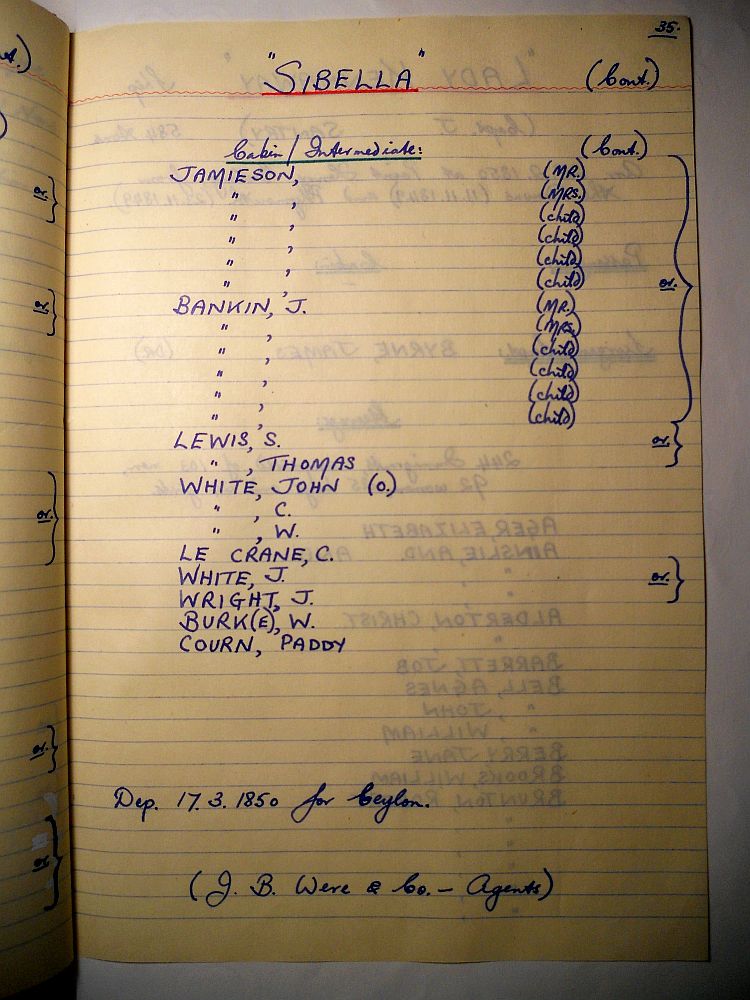 35.
"SIBELLA" (Cont.)
Cabin / Intermediate: (Cont.)
JAMIESON, (MR.)
" , (MRS.)
" , (child)
" , (child)
" , (child) or.
" , (child)
BANKIN, J. (MR.)
" , (MRS.)
" , (child)
" , (child)
" , (child)
" , (child)
LEWIS, S. or.
" , THOMAS
WHITE, JOHN (O.)
" , C.
" , W.
LE CRANE, C.
WHITE, J. or.
WRIGHT, J.
BURK(E), W.
COURN, PADDY
Dep. 17.3.1850 for Ceylon.
(J. B. Were & Co. - Agents)